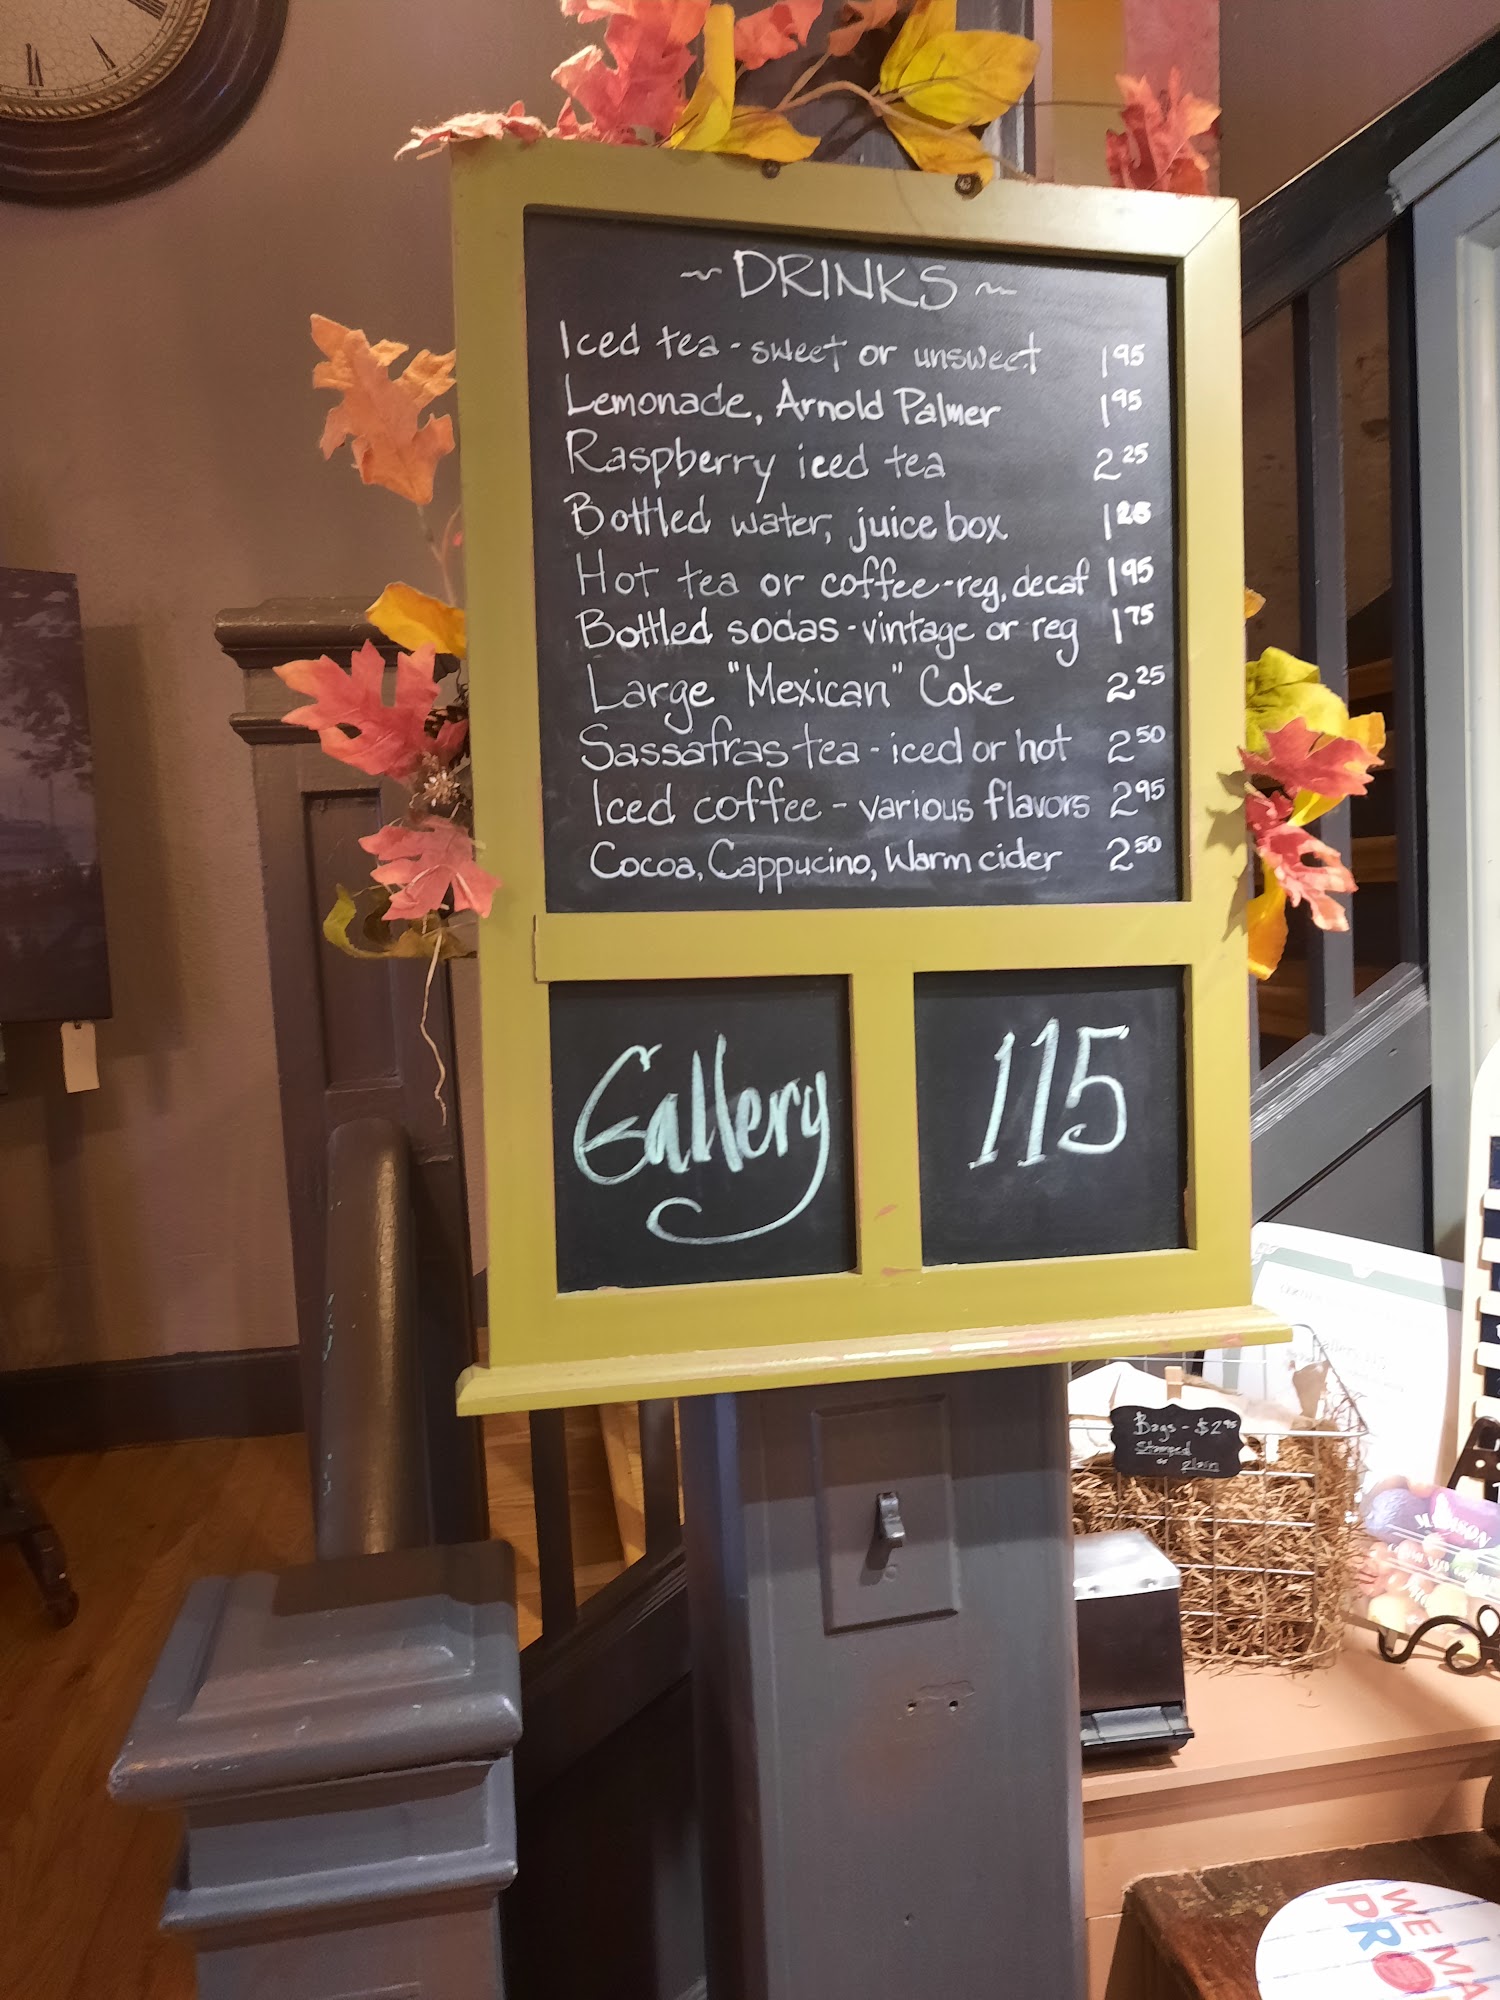 ~ DRINKS ~
Iced tea - sweet or unsweet 1 95
Lemonade, Arnold Palmer 1 95
Raspberry iced tea 2 25
Bottled water, juice box 1 25
Hot tea or coffee - reg, decaf 1 95
Bottled sodas - vintage or reg 1 75
Large "Mexican" Coke 2 25
Sassafras tea - iced or hot 2 50
Iced coffee - various flavors 2 95
Cocoa, Cappucino, Warm cider 2 50
Gallery 115
Bags - $2 95
Stamped
or plain
MADISON
WE MA
PRO